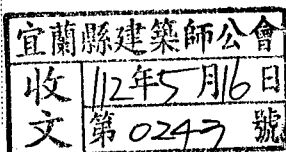 宜蘭縣建築師公會
收文 112年5月16日
第0243號